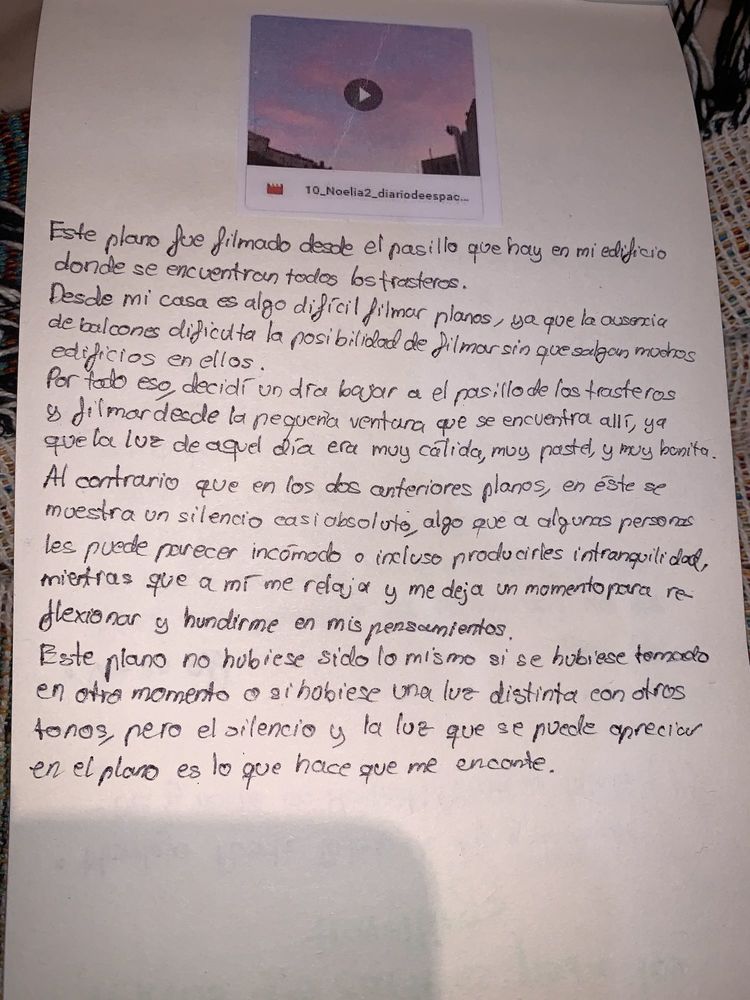 10_Noelia2_diariodeespac...
Este plano fue filmado desde el pasillo que hay en mi edificio
donde se encuentran todos los trasteros.
Desde mi casa es algo difícil filmar planos, ya que la ausencia
de balcones dificulta la posibilidad de filmar sin que salgan muchos
edificios en ellos.
Por todo eso, decidí un día bajar a el pasillo de los trasteros
y filmar desde la pequeña ventana que se encuentra allí, ya
que la luz de aquel día era muy cálida, muy pastel, y muy bonita.
Al contrario que en los dos anteriores planos, en éste se
muestra un silencio casi absoluto, algo que a algunas personas
les puede parecer incómodo o incluso producirles intranquilidad,
mientras que a mí me relaja y me deja un momento para re-
flexionar y hundirme en mis pensamientos.
Este plano no hubiese sido lo mismo si se hubiese tomado
en otro momento o si hubiese una luz distinta con otros
tonos, pero el silencio y la luz que se puede apreciar
en el plano es lo que hace que me encante.